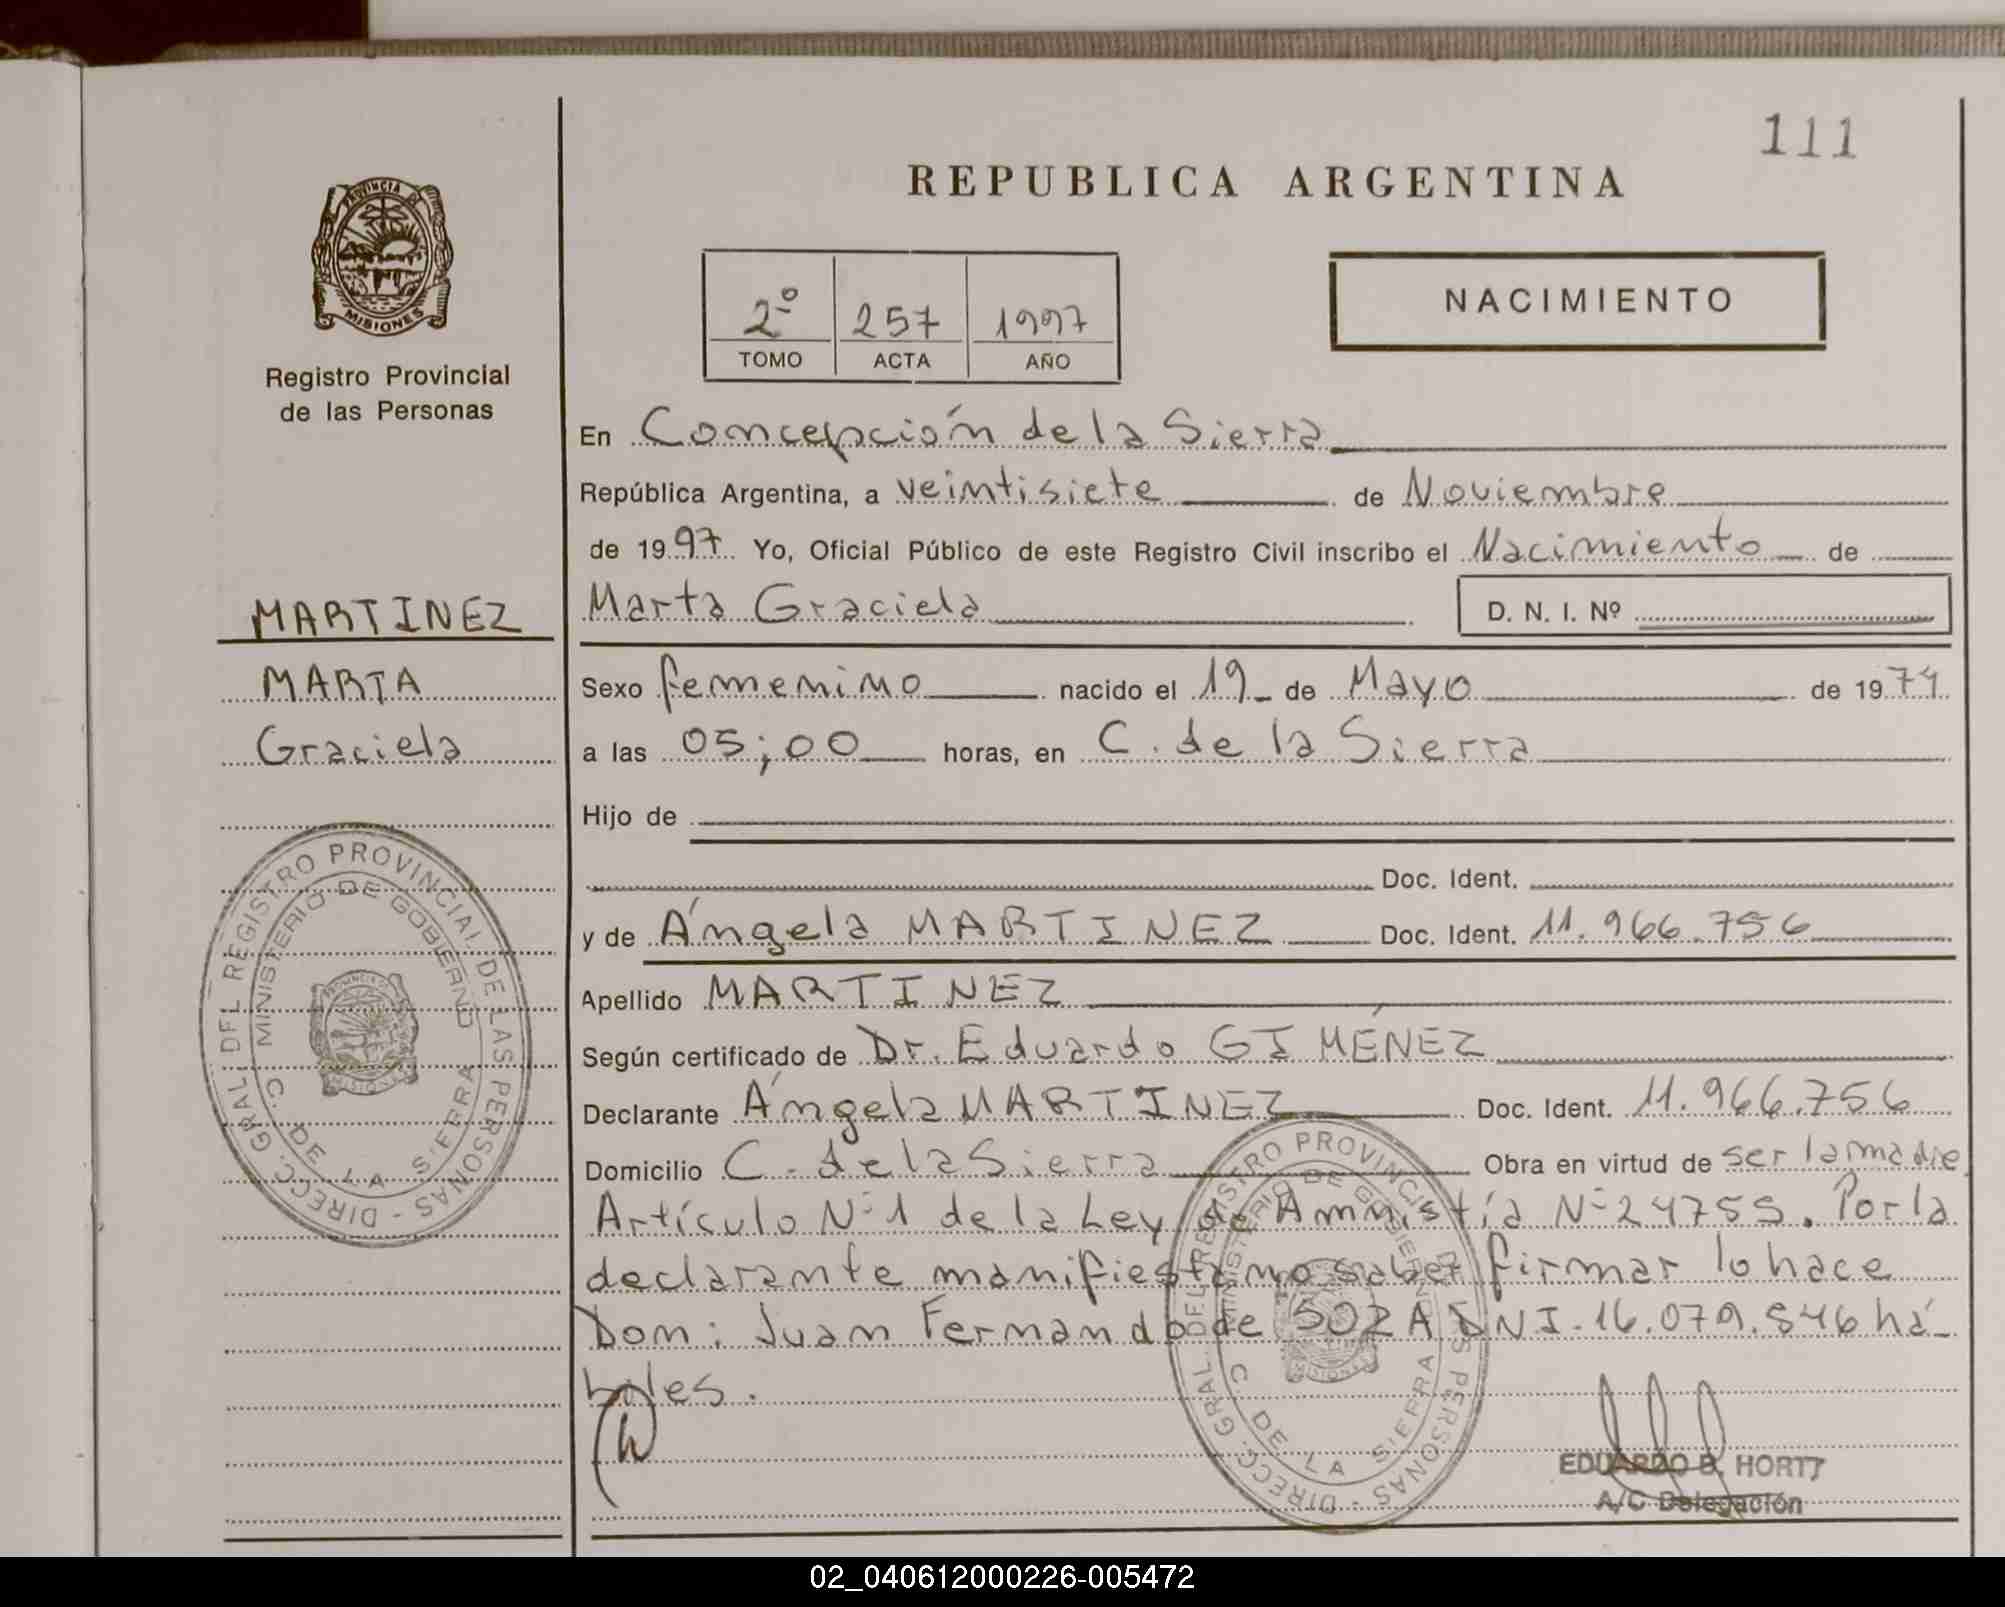 111
REPUBLICA ARGENTINA
PROVINCIA DE
MISIONES
Registro Provincial
de las Personas
2º 257 1997
TOMO ACTA AÑO
NACIMIENTO
En Concepción de la Sierra
República Argentina, a veintisiete de Noviembre
de 1997 Yo, Oficial Público de este Registro Civil inscribo el Nacimiento de
Marta Graciela D. N. I. Nº
MARTINEZ
MARTA
Graciela
Sexo femenino nacido el 19 de Mayo de 1974
a las 05;00 horas, en C. de la Sierra
Hijo de
Doc. Ident.
y de Ángela MARTINEZ Doc. Ident. 11.966.756
Apellido MARTINEZ
Según certificado de Dr. Eduardo GIMÉNEZ
Declarante Ángela MARTINEZ Doc. Ident. 11.966.756
Domicilio C. de la Sierra Obra en virtud de ser la madre
Artículo Nº 1 de la Ley de Amnistía Nº 24755. Por la
declarante manifiesta no saber firmar lo hace
Don: Juan Fernando de SOZA DNI. 16.079.846 há
biles.
DIRECC. GRAL. DEL REGISTRO PROVINCIAL DE LAS PERSONAS -
MINISTERIO DE GOBIERNO
C. DE LA SIERRA
DIRECC. GRAL. DEL REGISTRO PROVINCIAL DE LAS PERSONAS -
MINISTERIO DE GOBIERNO
C. DE LA SIERRA
EDUARDO B. HORTT
A/C Delegación
02_040612000226-005472